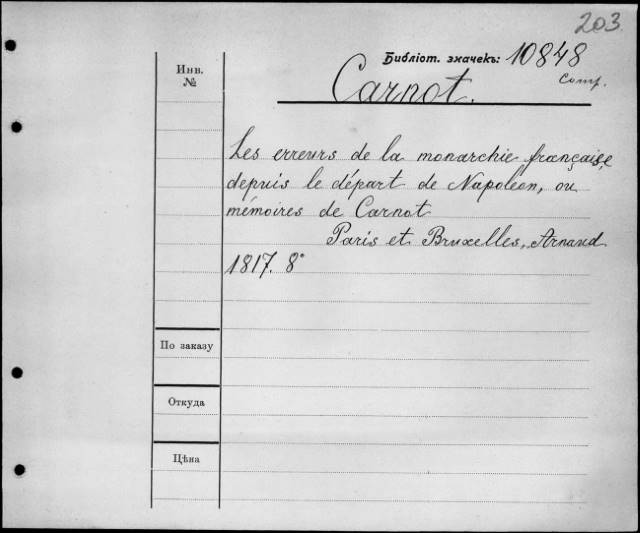 203.
Библіот. значекъ: 10848
Comp.
Carnot.
Инв.
№
Les erreurs de la monarchie française
depuis le départ de Napoléon, ou
mémoires de Carnot
Paris et Bruxelles, Arnaud
1817. 8°
По заказу
Откуда
Цѣна